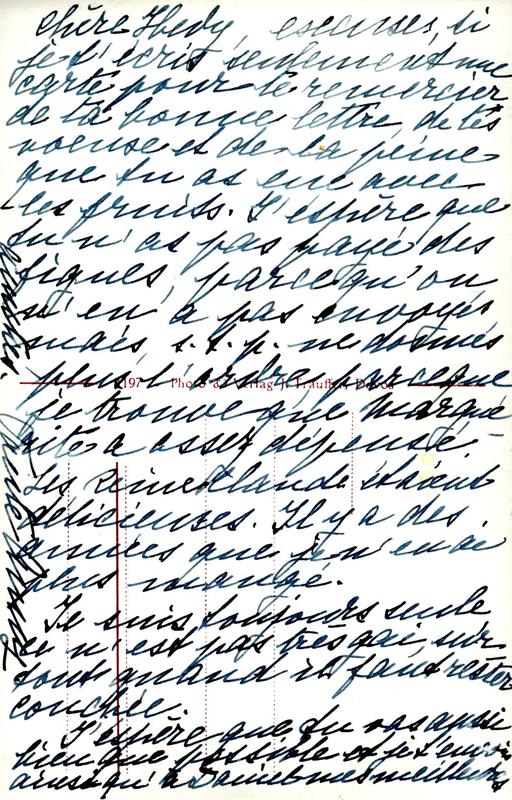 chère Hedy, excuses, si
je t'écris seulement une
carte pour te remercier
de ta bonne lettre, de tes
voeux et de la peine
que tu as eue avec
les fruits. J'espère que
tu n'as pas payé des
figues, parcequ'on
n'en a pas envoyés
mais, s.t.p. ne donnes
plus l'ordre, parceque
197 Photo & Verlag J. Trauffer, Davos
je trouve que Margue
rite a assez dépensé.
Les Reineklaude étaient
délicieuses. Il y a des
années que je n'en ai
plus mangé.
Je suis toujours seule
ce n'est pas très gai, sur-
tout quand il faut rester
couchée.
J'espère que tu vas aussi
bien que possible et je t'envoie
ainsi qu'à mes meilleurs